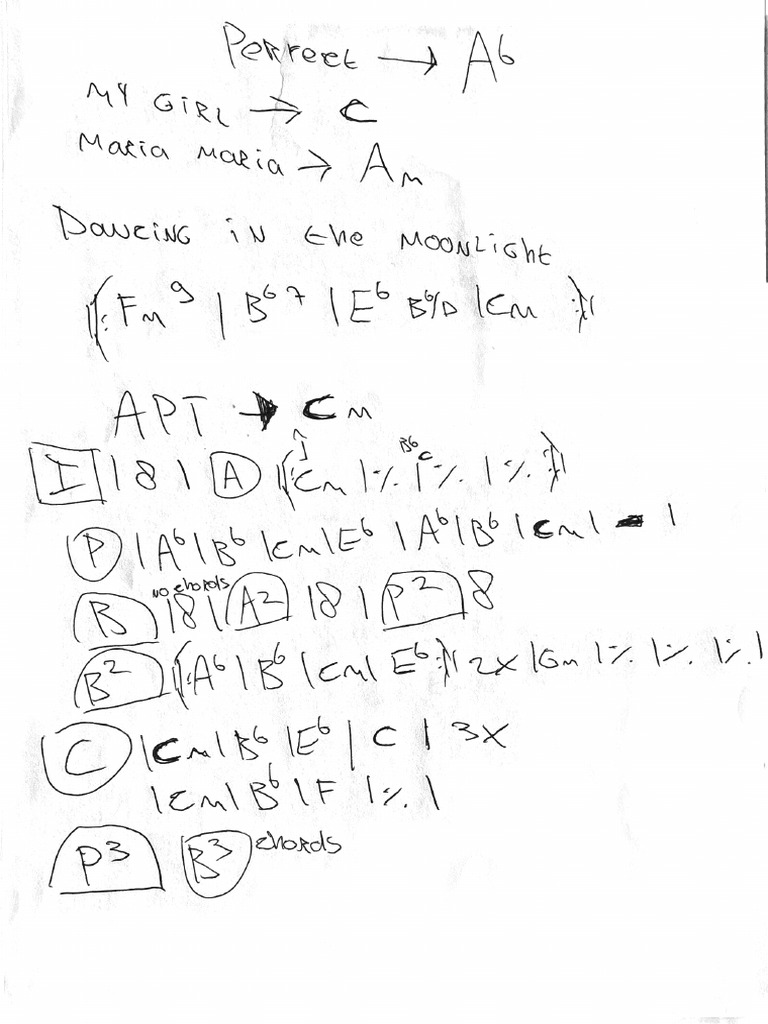 Perfect → Ab
MY GIRL → C
Maria Maria → Am
Dancing in the Moonlight
||: Fm9 | Bb7 | Eb Bb/D | Cm :||
APT → Cm
I | 8 | A ||: Cm | % | Bb C % | % :||
P | Ab | Bb | Cm | Eb | Ab | Bb | Cm | - |
B no chords | 8 | A2 | 8 | P2 8
B2 ||: Ab | Bb | Cm | Eb :|| 2x | Gm | % | % | % |
C | Cm | Bb | Eb | C | 3x
| Cm | Bb | F | % |
P3 B3 chords